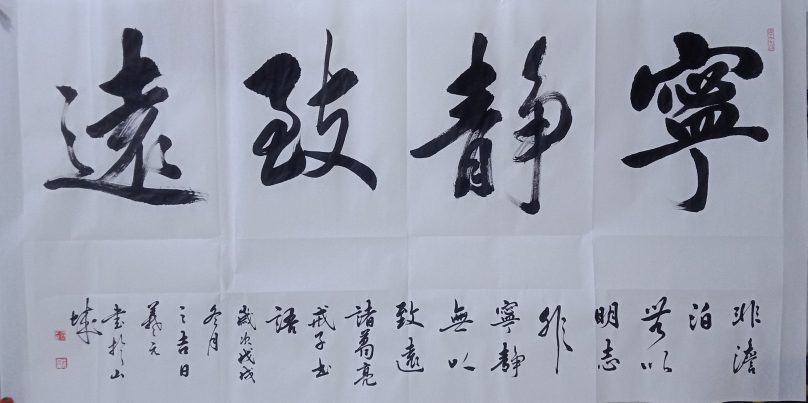 寧靜致遠
非澹
泊
無以
明志
非
寧靜
無以
致遠
諸葛亮
戒子書
語
歲次戊戌
冬月
之吉日
義元
書於山
城